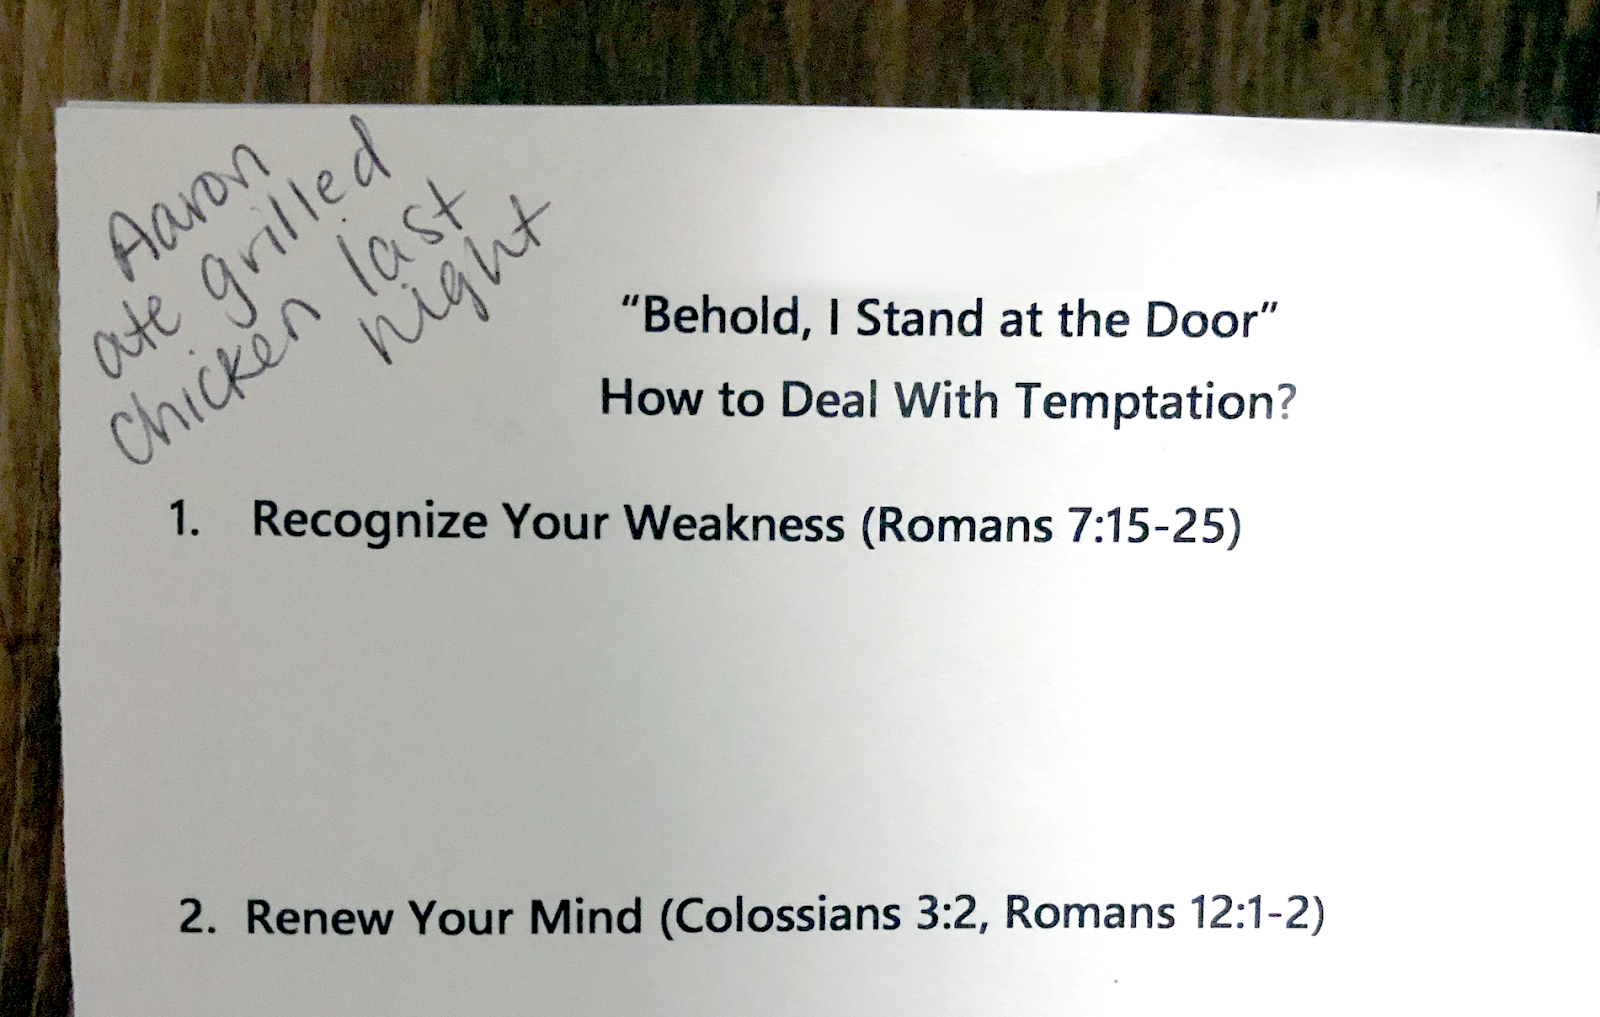 Aaron
ate grilled
chicken last
night
“Behold, I Stand at the Door”
How to Deal With Temptation?
1. Recognize Your Weakness (Romans 7:15-25)
2. Renew Your Mind (Colossians 3:2, Romans 12:1-2)